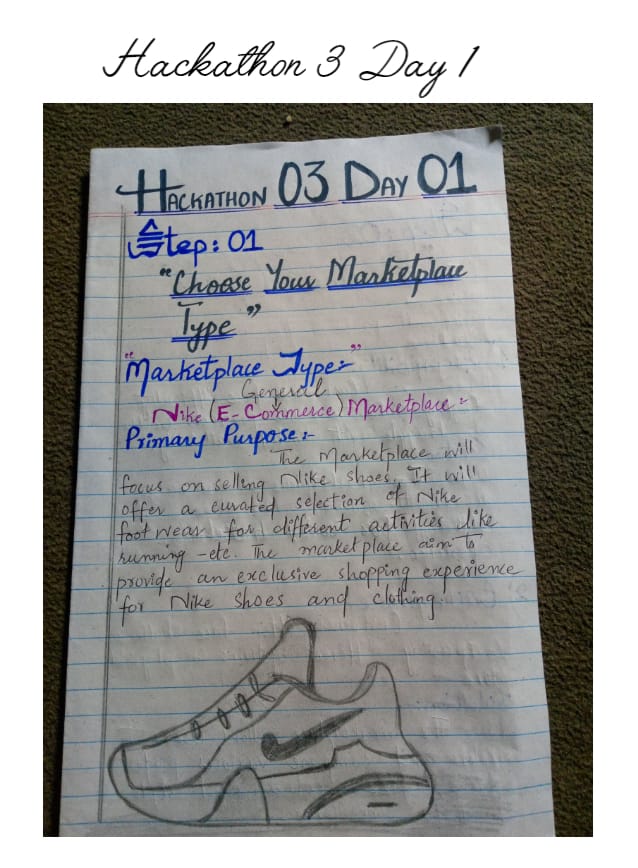 Hackathon 3 Day 1
HACKATHON 03 DAY 01
Step: 01
"Choose Your Marketplace
Type"
"Marketplace Type:-"
General
Nike (E-Commerce) Marketplace:-
Primary Purpose:-
The Marketplace will
focus on selling Nike shoes. It will
offer a curated selection of Nike
footwear for different activities like
running -etc. The marketplace aim to
provide an exclusive shopping experience
for Nike shoes and clothing.